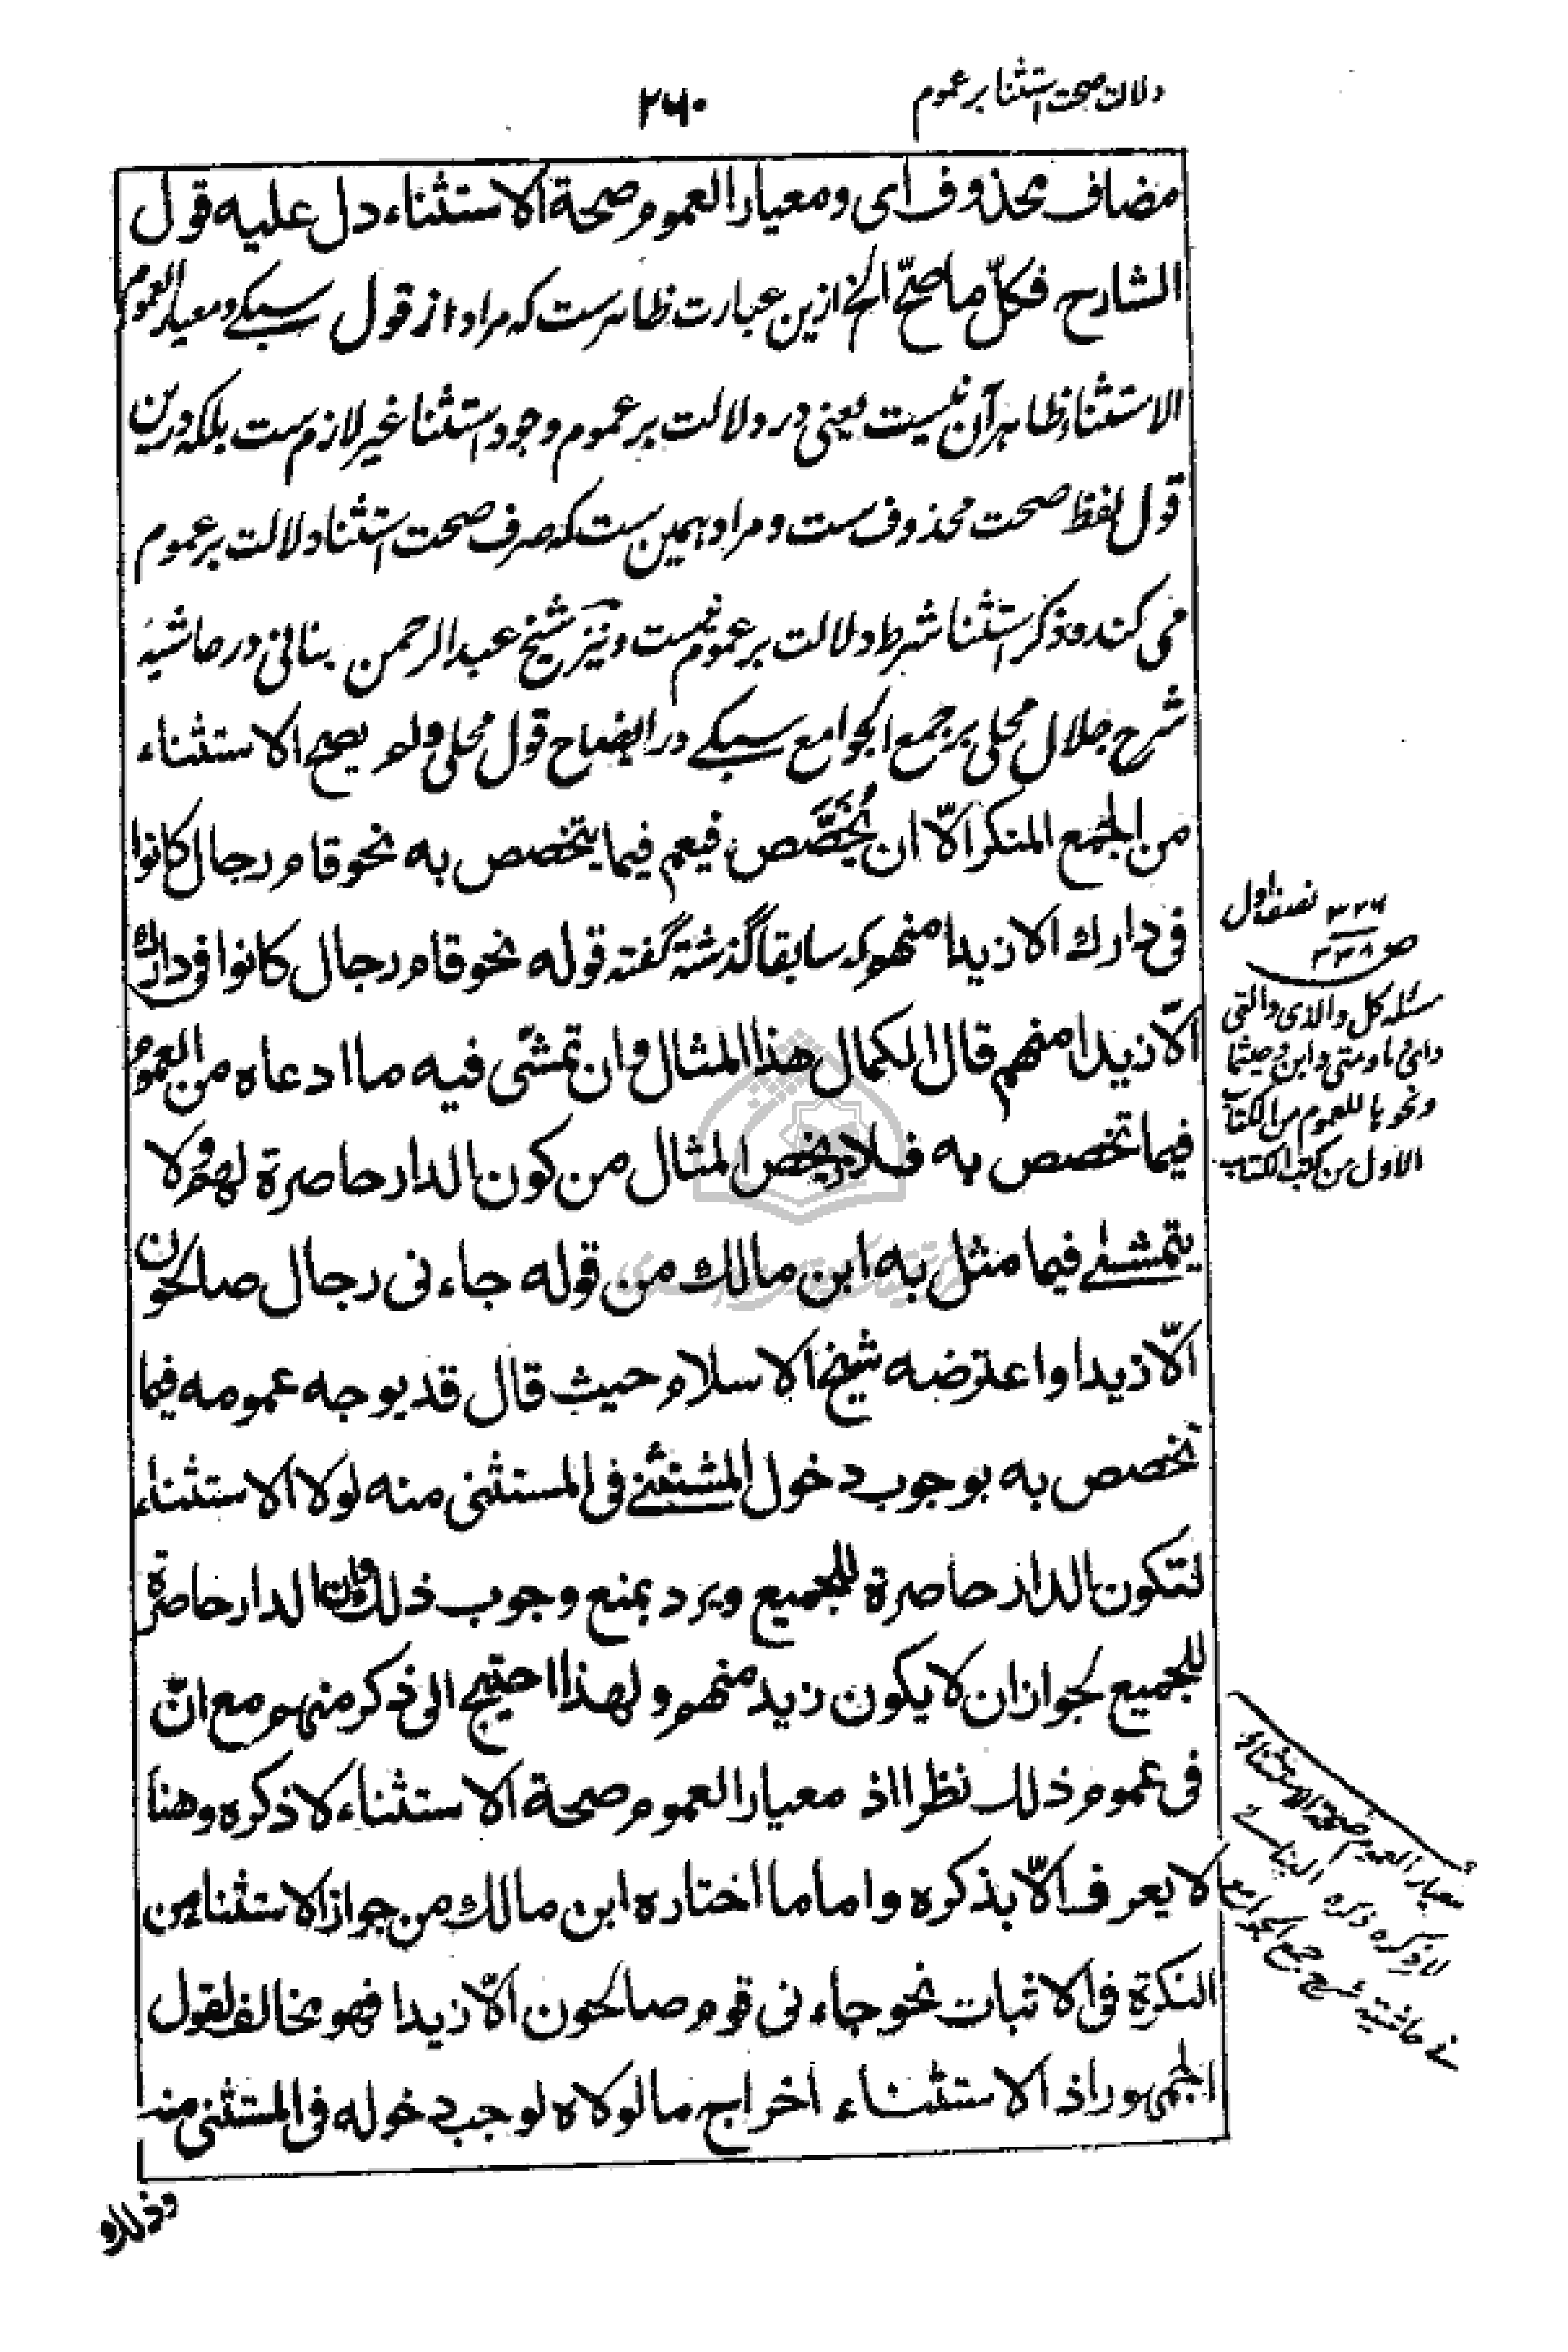 دلالت صحت استثنا بر عموم
۲۶۰
مضاف محذوف ای ومعیار العموم صحة الاستثناء دل علیه قول
الشارح فکلّ ما صحّ الخ ازین عبارت ظاهرست که مراد از قول سبکے ومعیار العموم
الاستثناء ظاهر آن نیست یعنی در دلالت بر عموم وجود استثنا غیر لازم ست بلکه درین
قول لفظ صحت محذوف ست و مراد همین ست که صرف صحت استثنا دلالت بر عموم
می کند و ذکر استثنا شرط دلالت بر عموم نیست و نیز شیخ عبد الرحمن بنانی در حاشیهٔ
شرح جلال محلی بر جمع الجوامع سبکے در ایضاح قول محلی ولم یصح الاستثناء
من الجمع المنکر الّا ان یُخَصَّص فیعم فیما یتخصص به نحو قام رجال کانوا
فی دارك الا زیدا منهم که سابقا گذشته گفته قوله نحو قام رجال کانوا فی دارك
الّا زیدا منهم قال الکمال هذا المثال وان تمشّی فیه ما ادعاه من العموم
فیما تخصص به فلا یخص المثال من کون الدار حاصرة لهم ولا
یتمشے فیما مثل به ابن مالك من قوله جاءنی رجال صالحون
الّا زیدا واعترضه شیخ الاسلام حیث قال قد یوجه عمومه فیما
تخصص به بوجوب دخول المستثنے فی المستثنی منه لولا الاستثناء
لتکون الدار حاصرة للجمیع ویرد بمنع وجوب ذلك وان الدار حاصرة
للجمیع لجواز ان لا یکون زید منهم ولهذا احتیج الی ذکر منهم مع انّ
فی عموم ذلك نظرا اذ معیار العموم صحة الاستثناء لا ذکره وهنا
لا یعرف الّا بذکره واما ما اختاره ابن مالك من جواز الاستثناء من
النکرة فی الاثبات نحو جاءنی قوم صالحون الّا زیدا فهو مخالف لقول
الجمهور اذ الاستثناء اخراج ما لولاه لوجب دخوله فی المستثنی منه
وذلك
نصف اول
ص
مسئله کل والذی والتی
وای وما ومتی واین وحیثما
ونحوها للعموم من الکتاب
الاول من کتب الکتاب
معیار العموم صحة الاستثناء
لا ذکره ذکره البنانے
فے حاشیته شرح جمع الجوامع